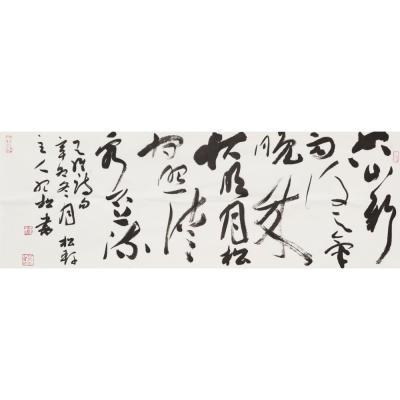 空山新
雨后天气
晚来
秋明月松
间照清
泉石上流
王维诗句
辛卯冬月松轩
主人松书